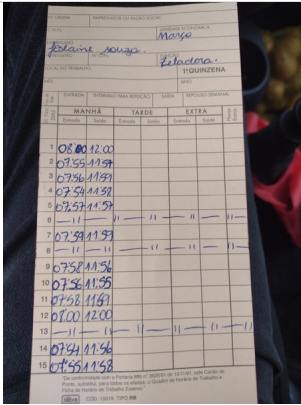 Nº ORDEM EMPREGADOR OU RAZÃO SOCIAL
ATIVIDADE ECONÔMICA
Março
Joslaine Souza.
Zeladora.
LOCAL DO TRABALHO 1ª QUINZENA
MÊS ANO
ENTRADA INTERVALO PARA REFEIÇÃO SAÍDA REPOUSO SEMANAL
MANHÃ TARDE EXTRA
Entrada Saída Entrada Saída Entrada Saída
1 08:00 12:00
2 07:55 11:57
3 07:56 11:59
4 07:54 11:58
5 07:57 11:57
6 — 11 — 11 — 11 — 11 — 11 —
7 07:54 11:59
8 — 11 — 11 — 11 — 11 — 11 —
9 07:58 11:56
10 07:56 11:55
11 07:58 11:59
12 08:00 12:00
13 — 11 — 11 — 11 — 11 — 11 —
14 07:54 11:56
15 07:55 11:58
"De conformidade com a Portaria MTb nº 3626/91 de 13/11/91, este Cartão de
Ponto, substitui, para todos os efeitos, o Quadro de Horário de Trabalho e
Ficha de Horário de Trabalho Externo."
CÓD. 15019 TIPO RB